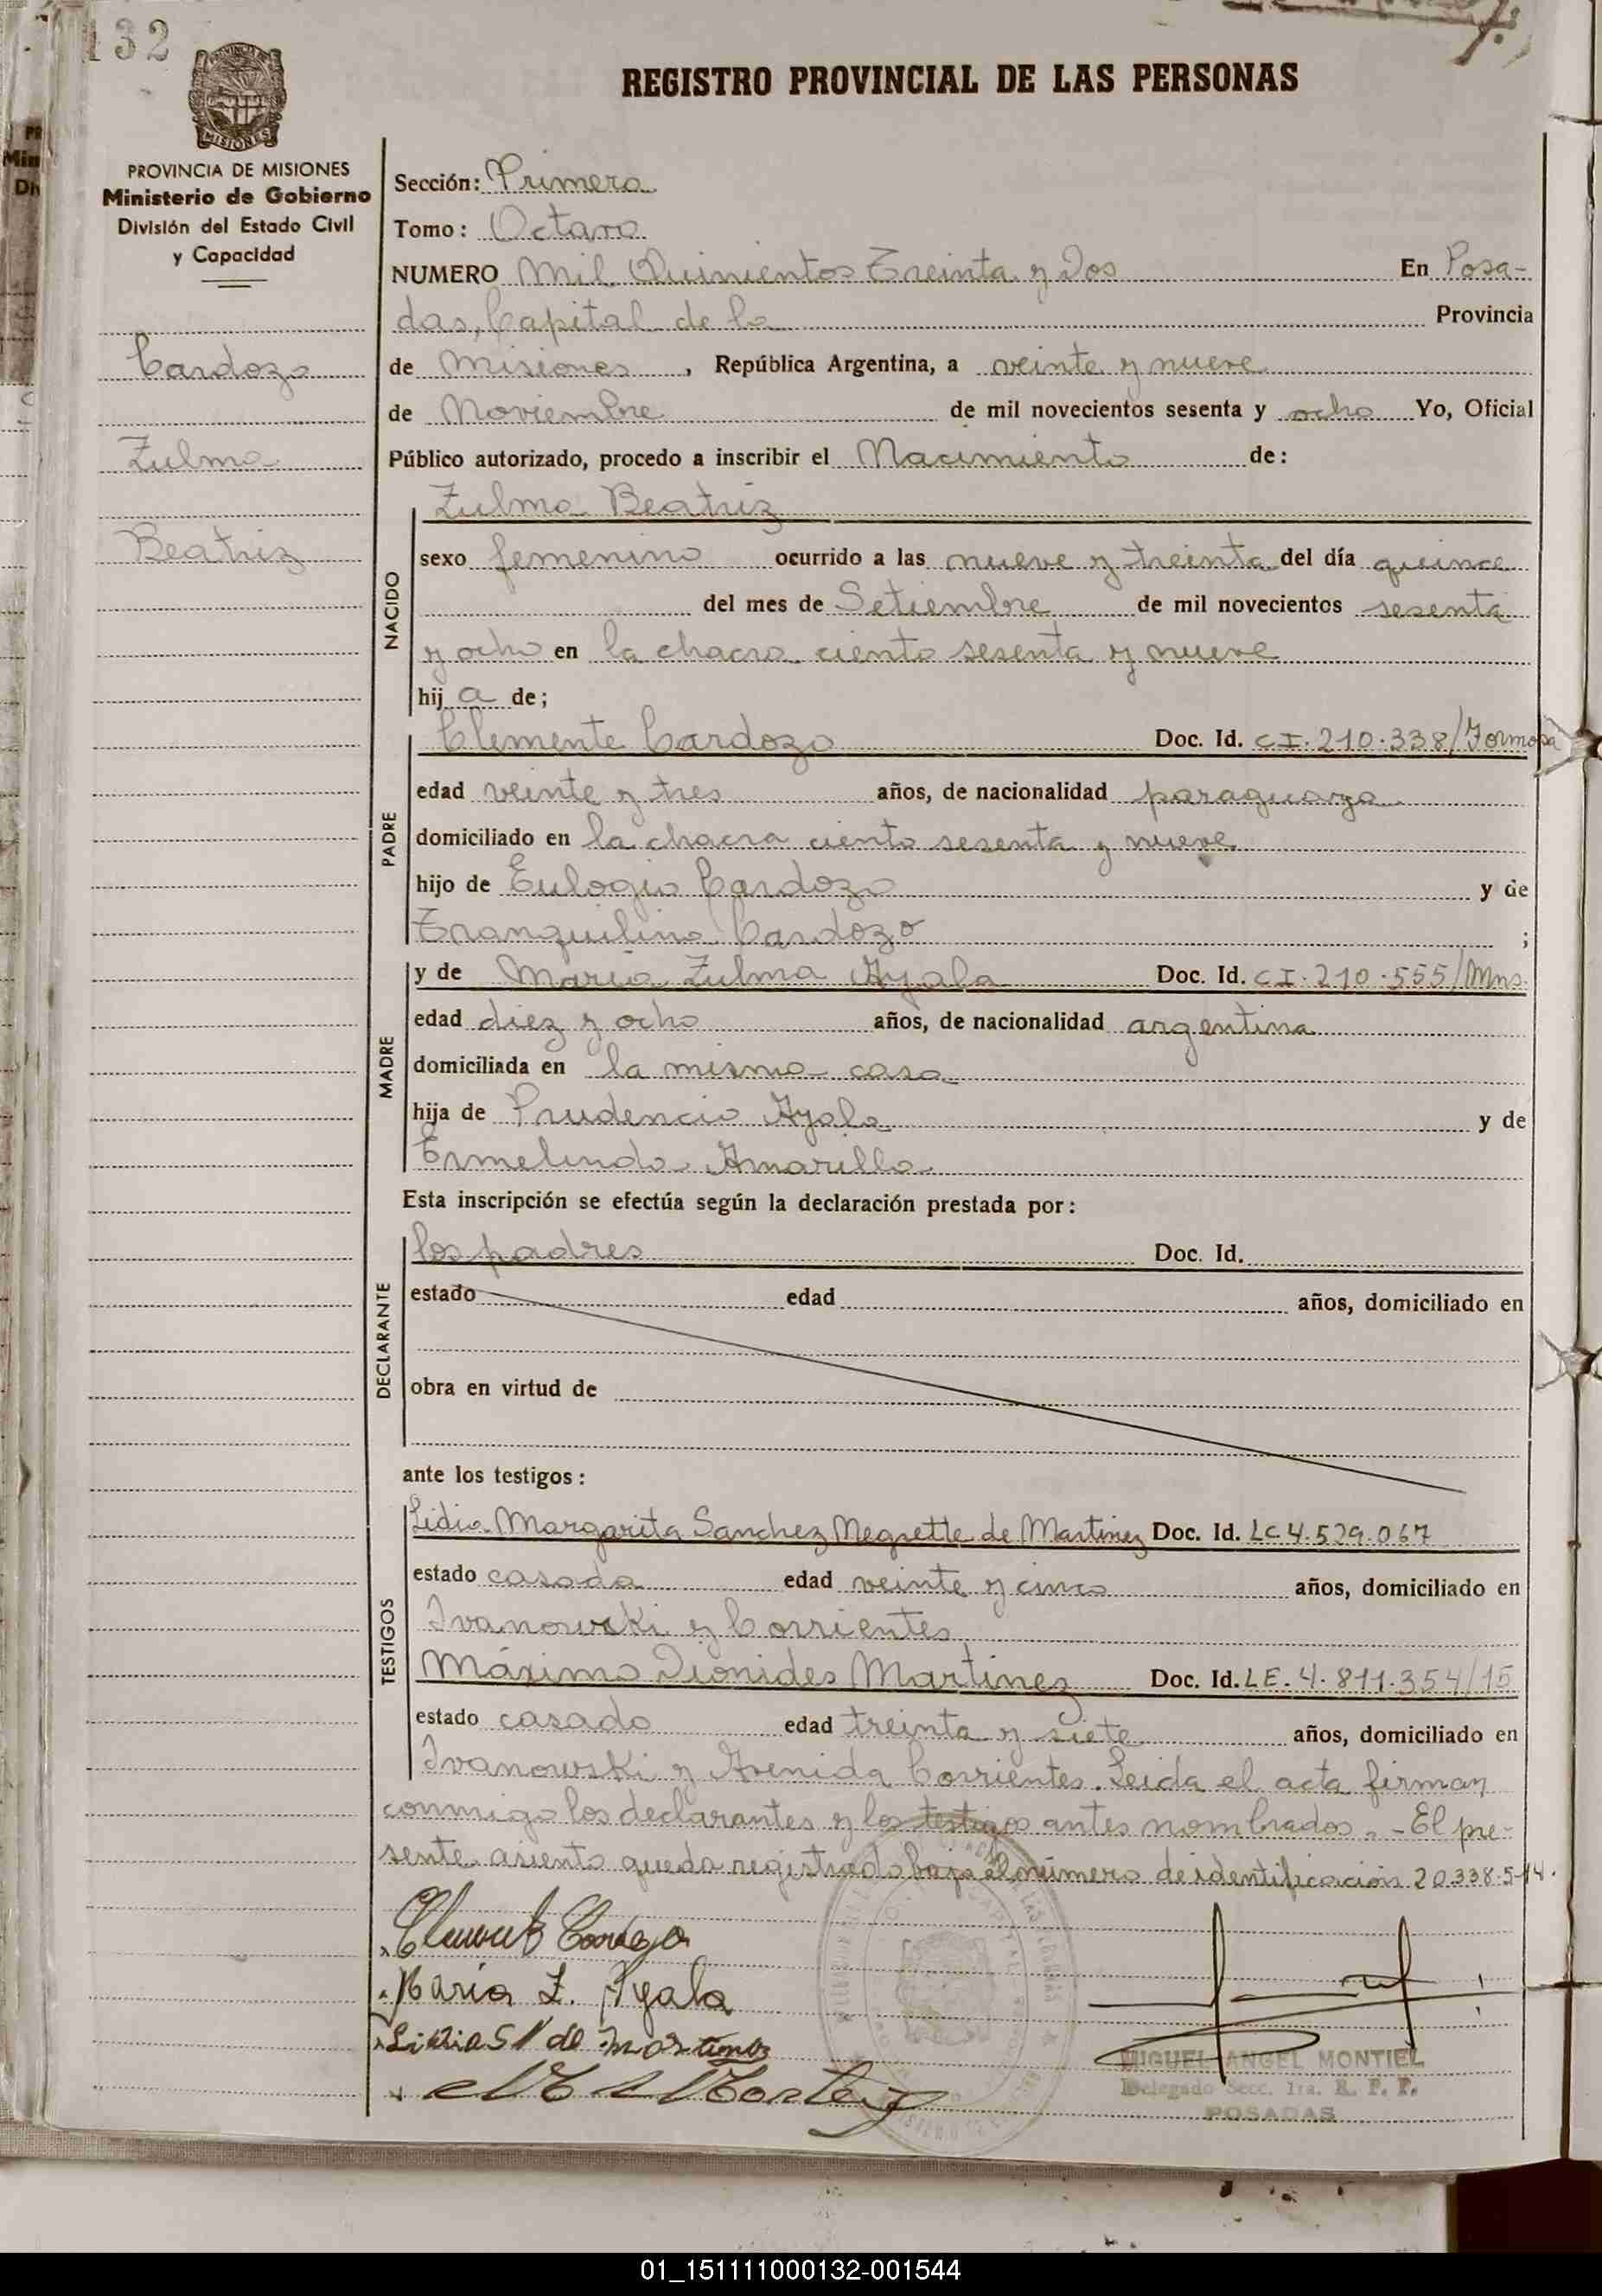 132
REGISTRO PROVINCIAL DE LAS PERSONAS
MISIONES
PROVINCIA DE MISIONES
Ministerio de Gobierno
División del Estado Civil
y Capacidad
Cardozo
Zulma
Beatriz
Sección: Primera
Tomo: Octavo
NUMERO Mil Quinientos Treinta y Dos En Posa-
das, Capital de la Provincia
de Misiones, República Argentina, a veinte y nueve
de Noviembre de mil novecientos sesenta y ocho Yo, Oficial
Público autorizado, procedo a inscribir el Nacimiento de:
NACIDO
Zulma Beatriz
sexo femenino ocurrido a las nueve y treinta del día quince
del mes de Setiembre de mil novecientos sesenta
y ocho en la chacra ciento sesenta y nueve
hij a de;
PADRE
Clemente Cardozo Doc. Id. CI. 210.338/Formosa
edad veinte y tres años, de nacionalidad paraguaya
domiciliado en la chacra ciento sesenta y nueve
hijo de Eulogio Cardozo y de
Tranquilina Cardozo ;
MADRE
y de María Zulma Ayala Doc. Id. CI. 210.555/Mns.
edad diez y ocho años, de nacionalidad argentina
domiciliada en la misma casa
hija de Prudencio Ayala y de
Ermelinda Amarilla
Esta inscripción se efectúa según la declaración prestada por:
DECLARANTE
los padres Doc. Id.
estado edad años, domiciliado en
obra en virtud de
ante los testigos:
TESTIGOS
Lidia Margarita Sanchez Negrette de Martinez Doc. Id. LC 4.529.067
estado casada edad veinte y cinco años, domiciliado en
Ivanowski y Corrientes
Máximo Dionides Martinez Doc. Id. LE. 4.811.354/15
estado casado edad treinta y siete años, domiciliado en
Ivanowski y Avenida Corrientes. Leida el acta firman
conmigo los declarantes y los testigos antes nombrados. - El pre-
sente asiento queda registrado bajo el número de identificación 20.338.514.
Clemente Cardozo
María Z. Ayala
Lidia S N de Martinez
MIGUEL ANGEL MONTIEL
Delegado Secc. 1ra. R. P. P.
POSADAS
01_151111000132-001544